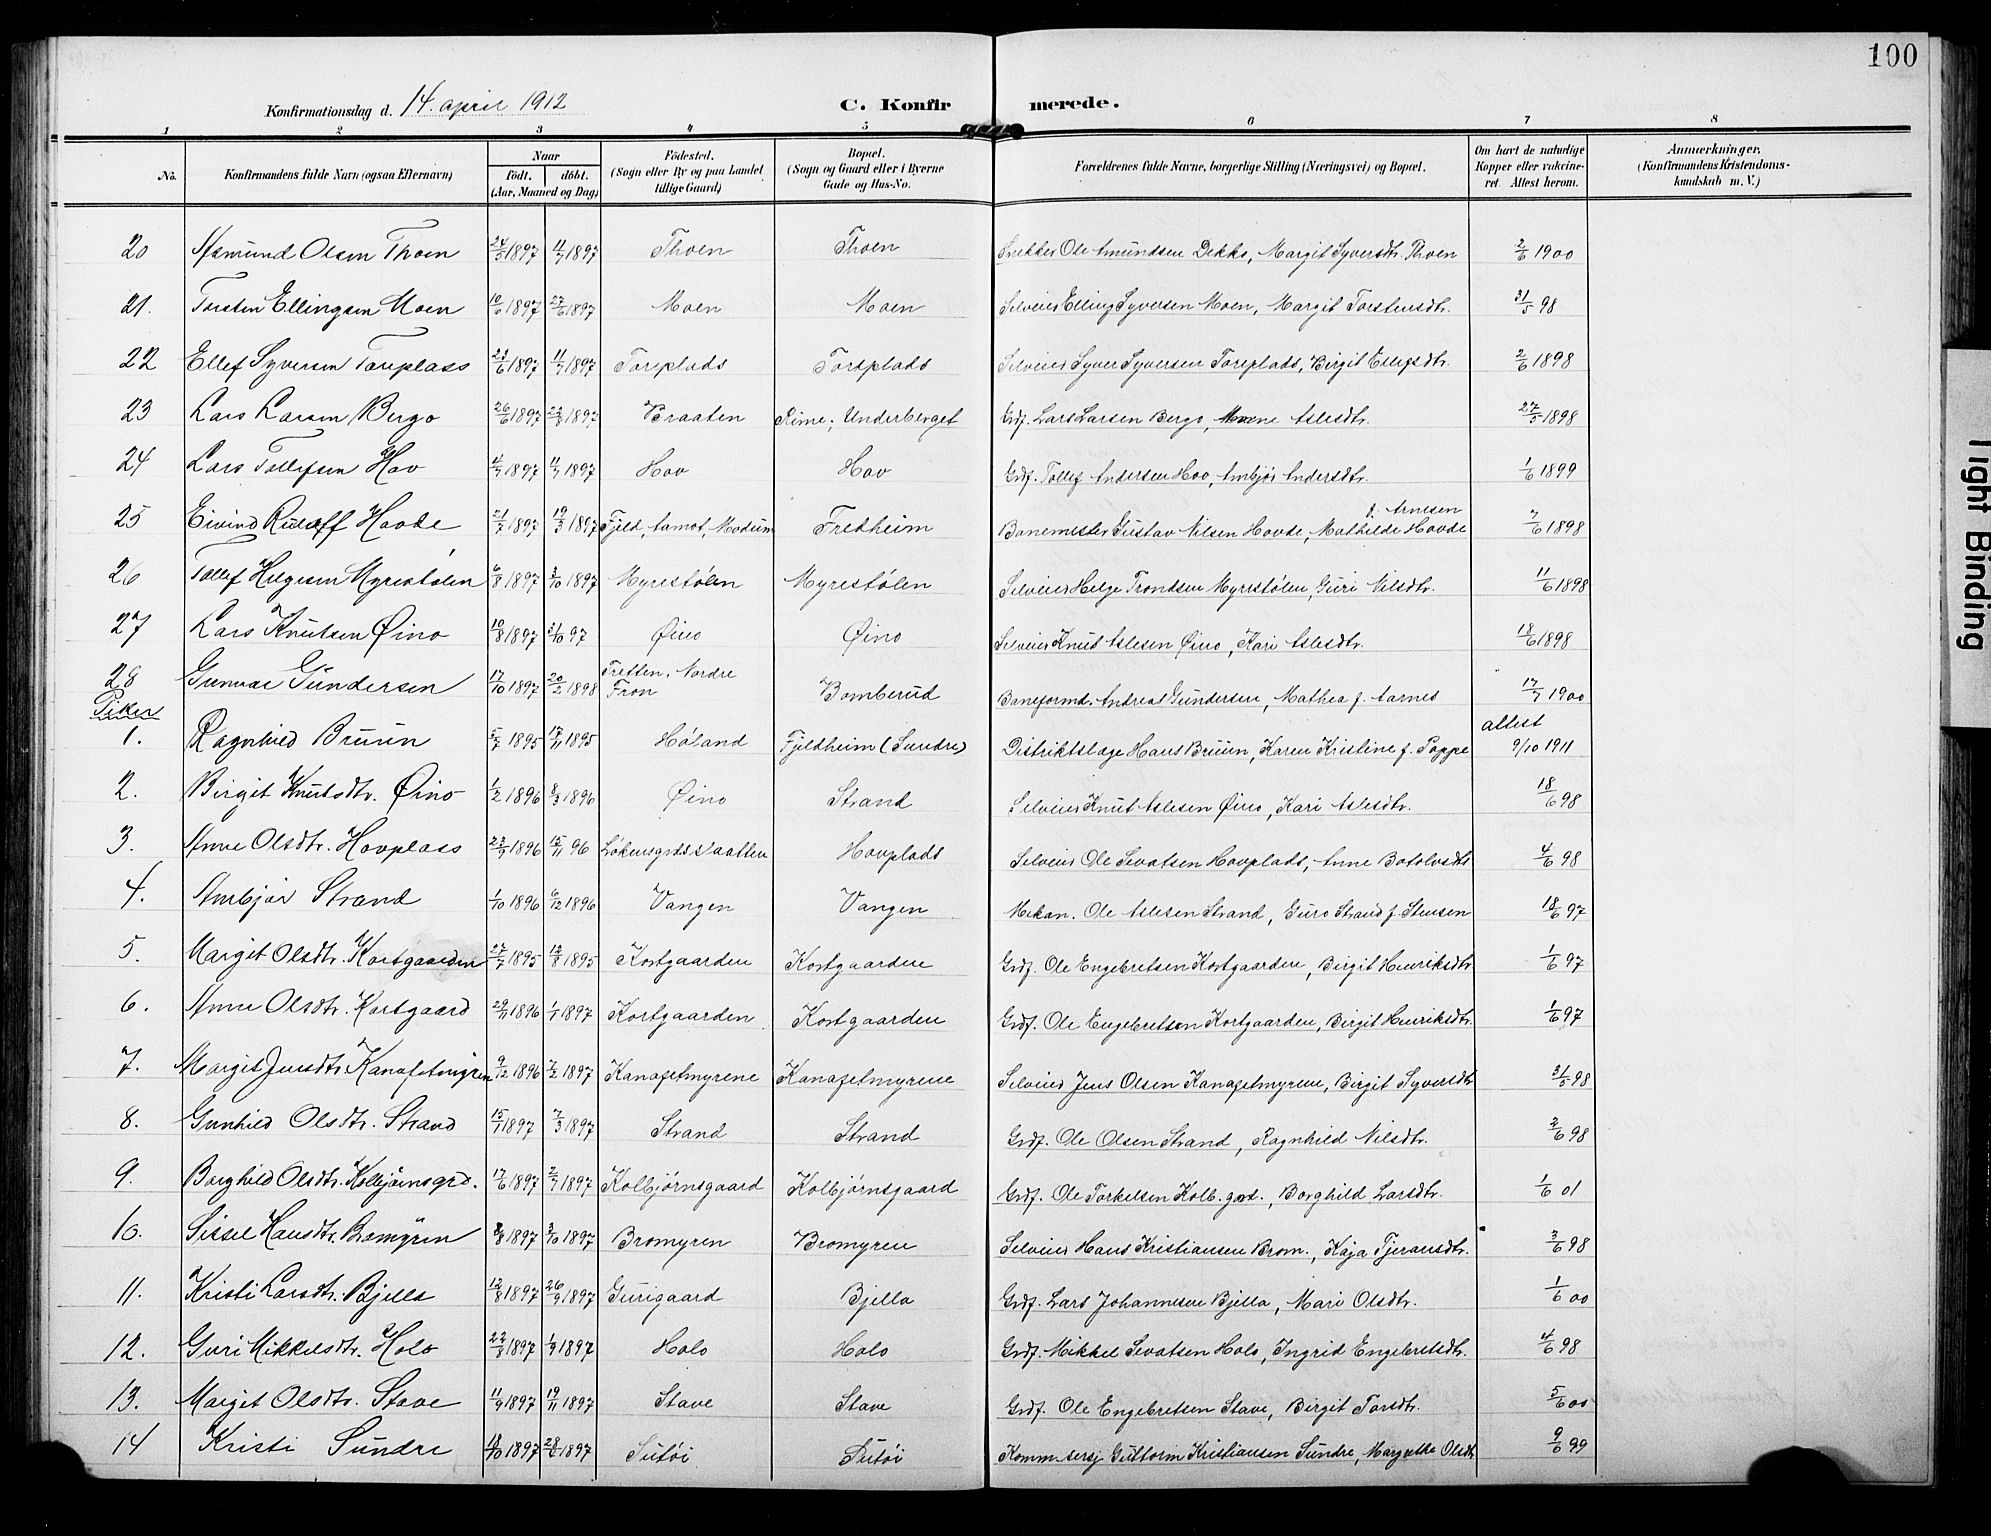 100
Konfirmationsdag d. 14. april 1912 C. Konfirmerede.
1 2 3 4 5 6 7 8
No. Konfirmandens fulde Navn (ogsaa Efternavn) Naar Födt. döbt. (Aar, Maaned og Dag) Födested. (Sogn eller By og paa Landet tillige Gaard) Bopæl. (Sogn og Gaard eller i Byerne Gade og Hus-No.) Forældrenes fulde Navne, borgerlige Stilling (Næringsvei) og Bopæl. Om havt de naturlige Kopper eller vaccineret. Attest herom. Anmerkninger, (Konfirmandens Kristendomskundskab m. V.)
20 Asmund Olsen Thoen 24/5 1897 11/7 1897 Thoen Thoen Snekker Ole Amundsen Dekko, Margit Syversdtr. Thoen 2/6 1900
21. Torsten Ellingsen Moen 10/6 1897 27/6 1897 Moen Moen Selveier Elling Syversen Moen, Margit Torstensdtr. 31/5 98
22 Ellef Syversen Torsplass 23/6 1897 11/7 1897 Torsplads Torsplads Selveier Syver Syversen Torsplads, Birgit Ellefsdtr. 2/6 1898
23 Lars Larsen Bergo 26/6 1897 22/8 1897 Braaten Rime, Underberget Grdf. Lars Larsen Bergo, Aslesdtr. 27/5 1898
24 Lars Tollefsen Hov 4/7 1897 11/7 1897 Hov Hov Grdf. Tollef Andersen Hov, Ambjør Andersdtr. 1/6 1899
25 Eivind Rudolf Hovde 21/7 1897 19/3 1897 Fjeld, Aamot, Modum Fredheim Banemester Gustav Nilsen Hovde, Mathilde Hovde f. Arnesen 7/6 1898
26 Tollef Helgesen Myrestølen 6/8 1897 3/10 1897 Myrestølen Myrestølen Selveier Helge Trondsen Myrestølen, Guri Nilsdtr. 11/6 1898
27 Lars Knutsen Øino 10/8 1897 3/10 97 Øino Øino Selveier Knut Aslesen Øino, Kari Aslesdtr. 18/6 1898
28 Gunvar Gundersen 17/10 1897 20/2 1898 Tretten, Nordre Fron Bomberud Baneformd. Andreas Gundersen, Mathea f. Aarnes 17/7 1900
Piker
1. Ragnhild Bruun 5/7 1895 17/11 1895 Høland Fjeldheim (Sundre) Distriktslæge Hans Bruun, Karen Kristine f. Poppe attest 9/10 1911
2. Birgit Knutsdtr. Øino 1/2 1896 8/3 1896 Øino Strand Selveier Knut Aslesen Øino, Kari Aslesdtr. 18/6 98
3. Anne Olsdtr. Hovplass 23/9 1896 15/11 96 Hovplads Selveier Ole Sevatsen Hovplads, Anne Botolvsdtr. 4/6 98
4. Ambjør Strand 1/10 1896 6/12 1896 Vangen Vangen Mekan. Ole Aslesen Strand, Guro Strand f. Stensen 18/6 97
5. Margit Olsdtr. Kortgaarden 27/7 1895 12/8 1895 Kortgaarden Kortgaarden Grdf. Ole Engebretsen Kortgaarden, Birgit Henriksdtr. 1/6 97
6. Anne Olsdtr. Kortgaard 29/11 1896 1/1 1897 Kortgaarden Kortgaarden Grdf. Ole Engebretsen Kortgaarden, Birgit Henriksdtr. 1/6 97
7. Margit Jensdtr. Kanafetmyren 9/12 1896 7/2 1897 Kanafetmyrene Kanafetmyrene Selveier Jens Olsen Kanafetmyrene, Birgit Syversdtr. 31/5 98
8. Gunhild Olsdtr. Strand 15/1 1897 7/3 1897 Strand Strand Grdf. Ole Olsen Strand, Ragnhild Nilsdtr. 2/6 98
9. Borghild Olsdtr. Kolbjørnsgrd. 17/6 1897 2/7 1897 Kolbjørnsgaard Kolbjørnsgaard Grdf. Ole Torkelsen Kolb. grd., Borghild Larsdtr. 1/6 01
10. Sissel Hansdtr. Bromyren 3/8 1897 3/10 1897 Bromyren Bromyren Selveier Hans Kristiansen Brom., Kaja Tjeransdtr. 3/6 98
11. Kristi Larsdtr. Bjella 12/8 1897 26/9 1897 Gurigaard Bjella Grdf. Lars Johannesen Bjella, Mari Olsdtr. 1/6 00
12. Guri Mikkelsdtr. Holo 22/8 1897 1/9 1897 Holo Holo Grdf. Mikkel Sevatsen Holo, Ingrid Engebretsdtr. 4/6 98
13. Margit Olsdtr. Stave 11/9 1897 19/11 1897 Stave Stave Grdf. Ole Engebretsen Stave, Birgit Torsdtr. 5/6 00
14 Kristi Sundre 18/10 1897 1897 Sutøi Sutøi Guttorm Kristiansen Sundre, Margrethe Olsdtr. 9/6 99
Tight Binding